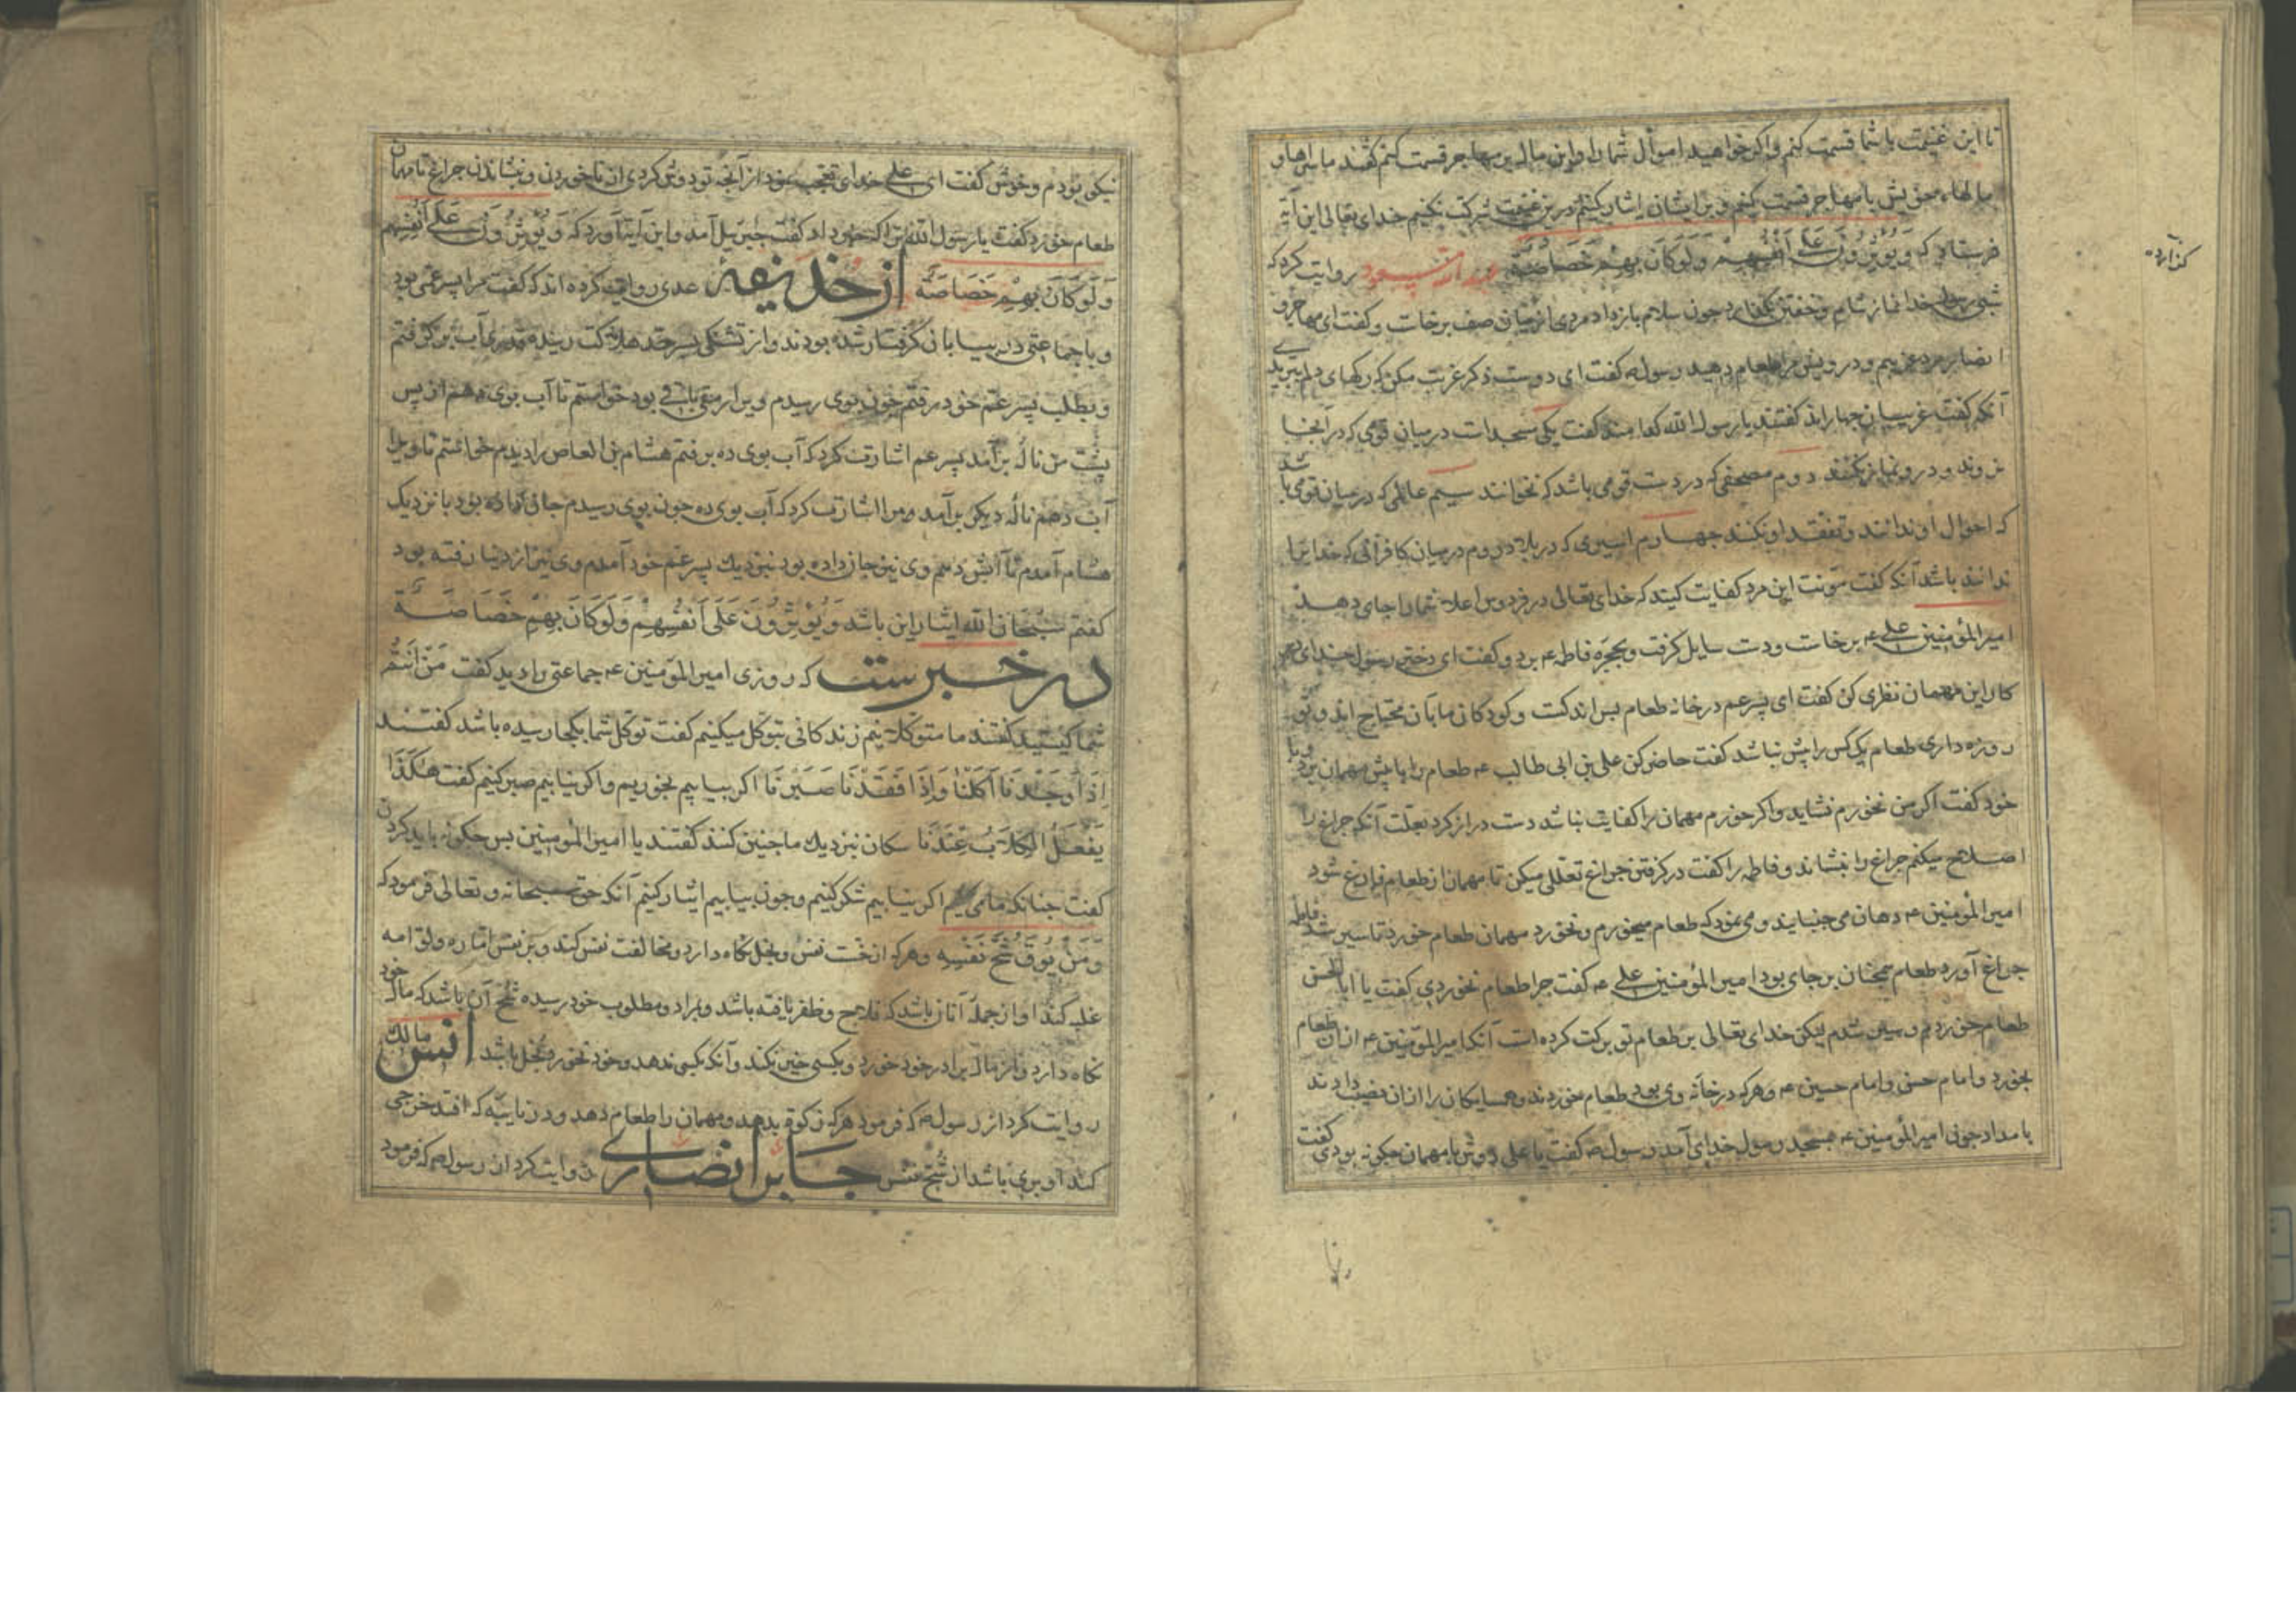 تا این غنیمت با شما قسمت کنم و اکر خواهید اموال شما را و این مال بر مهاجر قسمت کنم کفتند ما سراها و
مالهاء خویش با مهاجر قسمت کنیم و بر ایشان ایثار کنیم درین غنیمت شرکت نکنیم خدای تعالی این آیه
فرستاد که وَيُؤْثِرُونَ عَلَى أَنْفُسِهِمْ وَلَوْ كَانَ بِهِمْ خَصَاصَةٌ روایت کرد که
شبی رسول خدا نماز شام و خفتن بکذارد جون سلام باز داد مردی از میان صف برخاست و کفت ای مهاجر و
انصار مرد غریبم و درویش مرا طعام دهید رسول ص کفت ای دوست ذکر غربت مکن که رکهای دلم ببریدی
آنکه کفت غریبان جهار اند کفتند یا رسول الله کدامند کفت یکی مسجد است در میان قومی که در آنجا
نروند و درو نماز نکنند دوم مصحفی که در دست قومی باشد که نخوانند سیم عالمی که در میان قومی باشد
که احوال او ندانند و تفقد او نکنند جهارم اسیری که در بلاد روم در میان کافرانی که خدایرا
ندانند باشد آنکه کفت مؤنت این مرد کفایت کنید که خدای تعالی در فردوس اعلا شما را جای دهد
امیر المؤمنین علی ع برخاست و دست سایل کرفت و بحجره فاطمه ع برد و کفت ای دختر رسول خدای در
کار این مهمان نظری کن کفت ای پسر عم در خانه طعام بس اندکست و کودکان ما بآن محتاج اند و تو
روزه داری طعام یک کس را بیش نباشد کفت حاضر کن علی بن ابی طالب ع طعام را پیش مهمان برد و با
خود کفت اکر من نخورم نشاید و اکر خورم مهمان را کفایت نباشد دست دراز کرد بعلت آنکه جراغ را
اصلاح میکنم جراغ را بنشاند و فاطمه را کفت در کرفتن جراغ تعللی میکن تا مهمان از طعام فارغ شود
امیر المؤمنین ع دهان می جنبانید و می نمود که طعام میخورم و نخورد مهمان طعام خورد تا سیر شد فاطمه
جراغ آورد طعام همجنان بر جای بود امیر المؤمنین علی ع کفت جرا طعام نخوردی کفت یا ابا الحسن
طعام خوردم و سیر شدم لیکن خدای تعالی بر طعام تو برکت کرده است آنکه امیر المؤمنین ع از آن طعام
بخورد و امام حسن و امام حسین ع و هر که در خانه وی بود طعام خوردند و همسایکان را از ان نصیب دادند
بامداد جون امیر المؤمنین ع بمسجد رسول خدای آمد رسول ص کفت یا علی دوش با مهمان جکونه بودی کفت
کذارده
نیکو بودم و خوش کفت ای علی خدای تعجب نمود از آنجه تو دوش کردی از ناخوردن و بنشاندن جراغ تا مهمان
طعام خورد کفت یا رسول الله ترا که خبر داد کفت جبرئیل آمد و این آیت آورد که وَيُؤْثِرُونَ عَلَى أَنْفُسِهِمْ
وَلَوْ كَانَ بِهِمْ خَصَاصَةٌ از حذیفهٔ عدی روایت کرده اند که کفت مرا پسر عمی بود
و با جماعتی در بیابان کرفتار شده بودند و از تشنکی بسرحد هلاکت رسیده قدری آب بر کرفتم
و بطلب پسر عم خود رفتم جون بوی رسیدم ویرا رمقی باقی بود خواستم تا آب بوی دهم از پس
پشت من نالهٔ برآمد پسر عم اشارت کرد که آب بوی ده برفتم هشام بن العاص را دیدم خواستم تا ویرا
آب دهم نالهٔ دیکر برآمد مرا اشارت کرد که آب بوی ده جون بوی رسیدم جان داده بود با نزدیک
هشام آمدم تا آبش دهم وی نیز جان داده بود بنزدیک پسر عم خود آمدم وی نیز از دنیا رفته بود
کفتم سبحان الله ایثار این باشد وَيُؤْثِرُونَ عَلَى أَنْفُسِهِمْ وَلَوْ كَانَ بِهِمْ خَصَاصَةٌ
در خبرست که روزی امیر المؤمنین ع جماعتی را دید کفت مَنْ أَنْتُمْ
شما کیستید کفتند ما متوکلانیم زندکانی بتوکل میکنیم کفت توکل شما بکجا رسیده باشد کفتند
إِذَا وَجَدْنَا أَكَلْنَا وَإِذَا فَقَدْنَا صَبَرْنَا اکر بیابیم بخوریم و اکر نیابیم صبر کنیم کفت هٰكَذَا
يَفْعَلُ الْكِلَابُ عِنْدَنَا سکان نزدیک ما جنین کنند کفتند یا امیر المؤمنین بس جکونه باید کردن
کفت جنانکه ما می کنیم اکر نیابیم شکر کنیم و جون بیابیم ایثار کنیم آنکه حق سبحانه و تعالی فرمود که
وَمَنْ يُوقَ شُحَّ نَفْسِهِ و هر که از خست نفس و بخل نکاه دارد و مخالفت نفس کند و بر نفس اماره و لوامه
غلبه کند او از جمله آنان باشد که فلاح و ظفر یافته باشد و بمراد و مطلوب خود رسیده شح آن باشد که مال خود
نکاه دارد و از مال برادر خود خورد و بکسی خیر نکند و آنکه بکسی ندهد و خود نخورد بخل باشد انس مالک
روایت کرد از رسول ص که فرمود هر که زکوة بدهد و مهمان را طعام دهد و در نایبه که افتد خرجی
کند او بری باشد از شح نفس جابر انصاری روایت کرد از رسول ص که فرمود